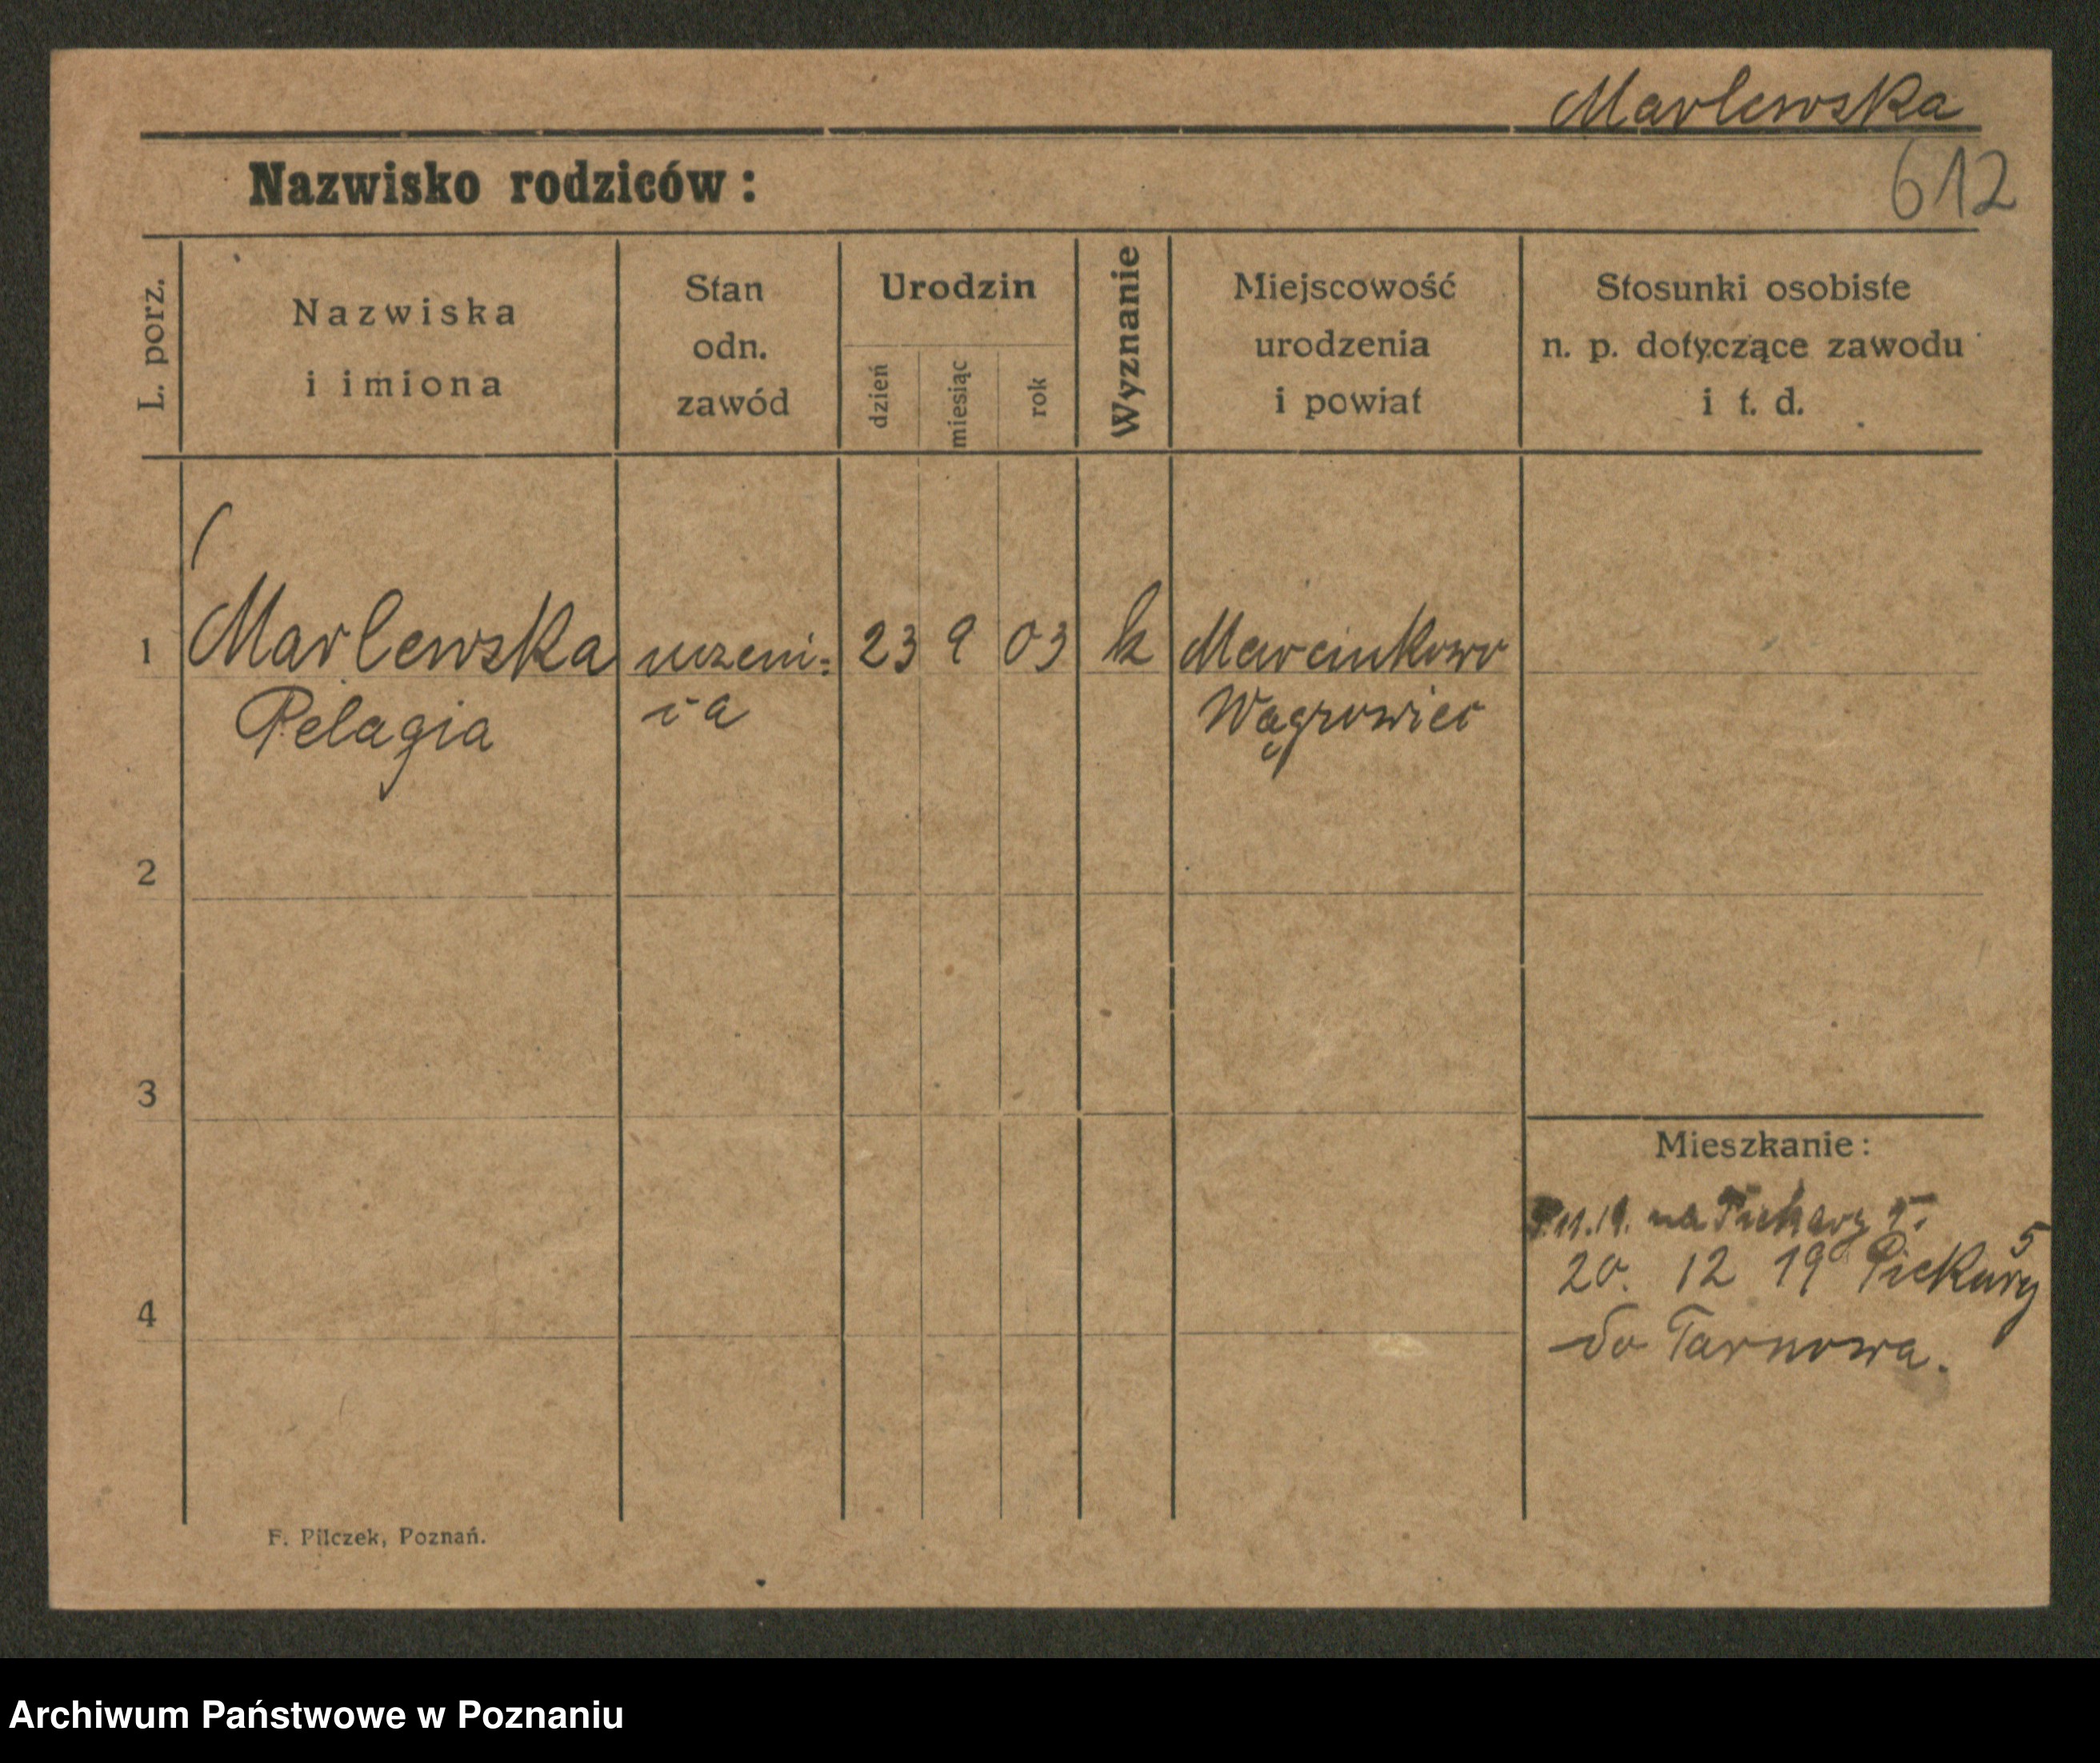 Marlewska
612
Nazwisko rodziców :
L. porz.
Nazwiska
i imiona
Stan
odn.
zawód
Urodzin
dzień
miesiąc
rok
Wyznanie
Miejscowość
urodzenia
i powiat
Stosunki osobiste
n. p. dotyczące zawodu
i t. d.
1
Marlewska
Pelagia
uczeni-
ca
23 9 03
k
Marcinkowo
Wągrowiec
2
3
4
Mieszkanie :
11.19. na 5.
20. 12 19 Piekary 5
do Tarnowa.
F. Pilczek, Poznań.
Archiwum Państwowe w Poznaniu